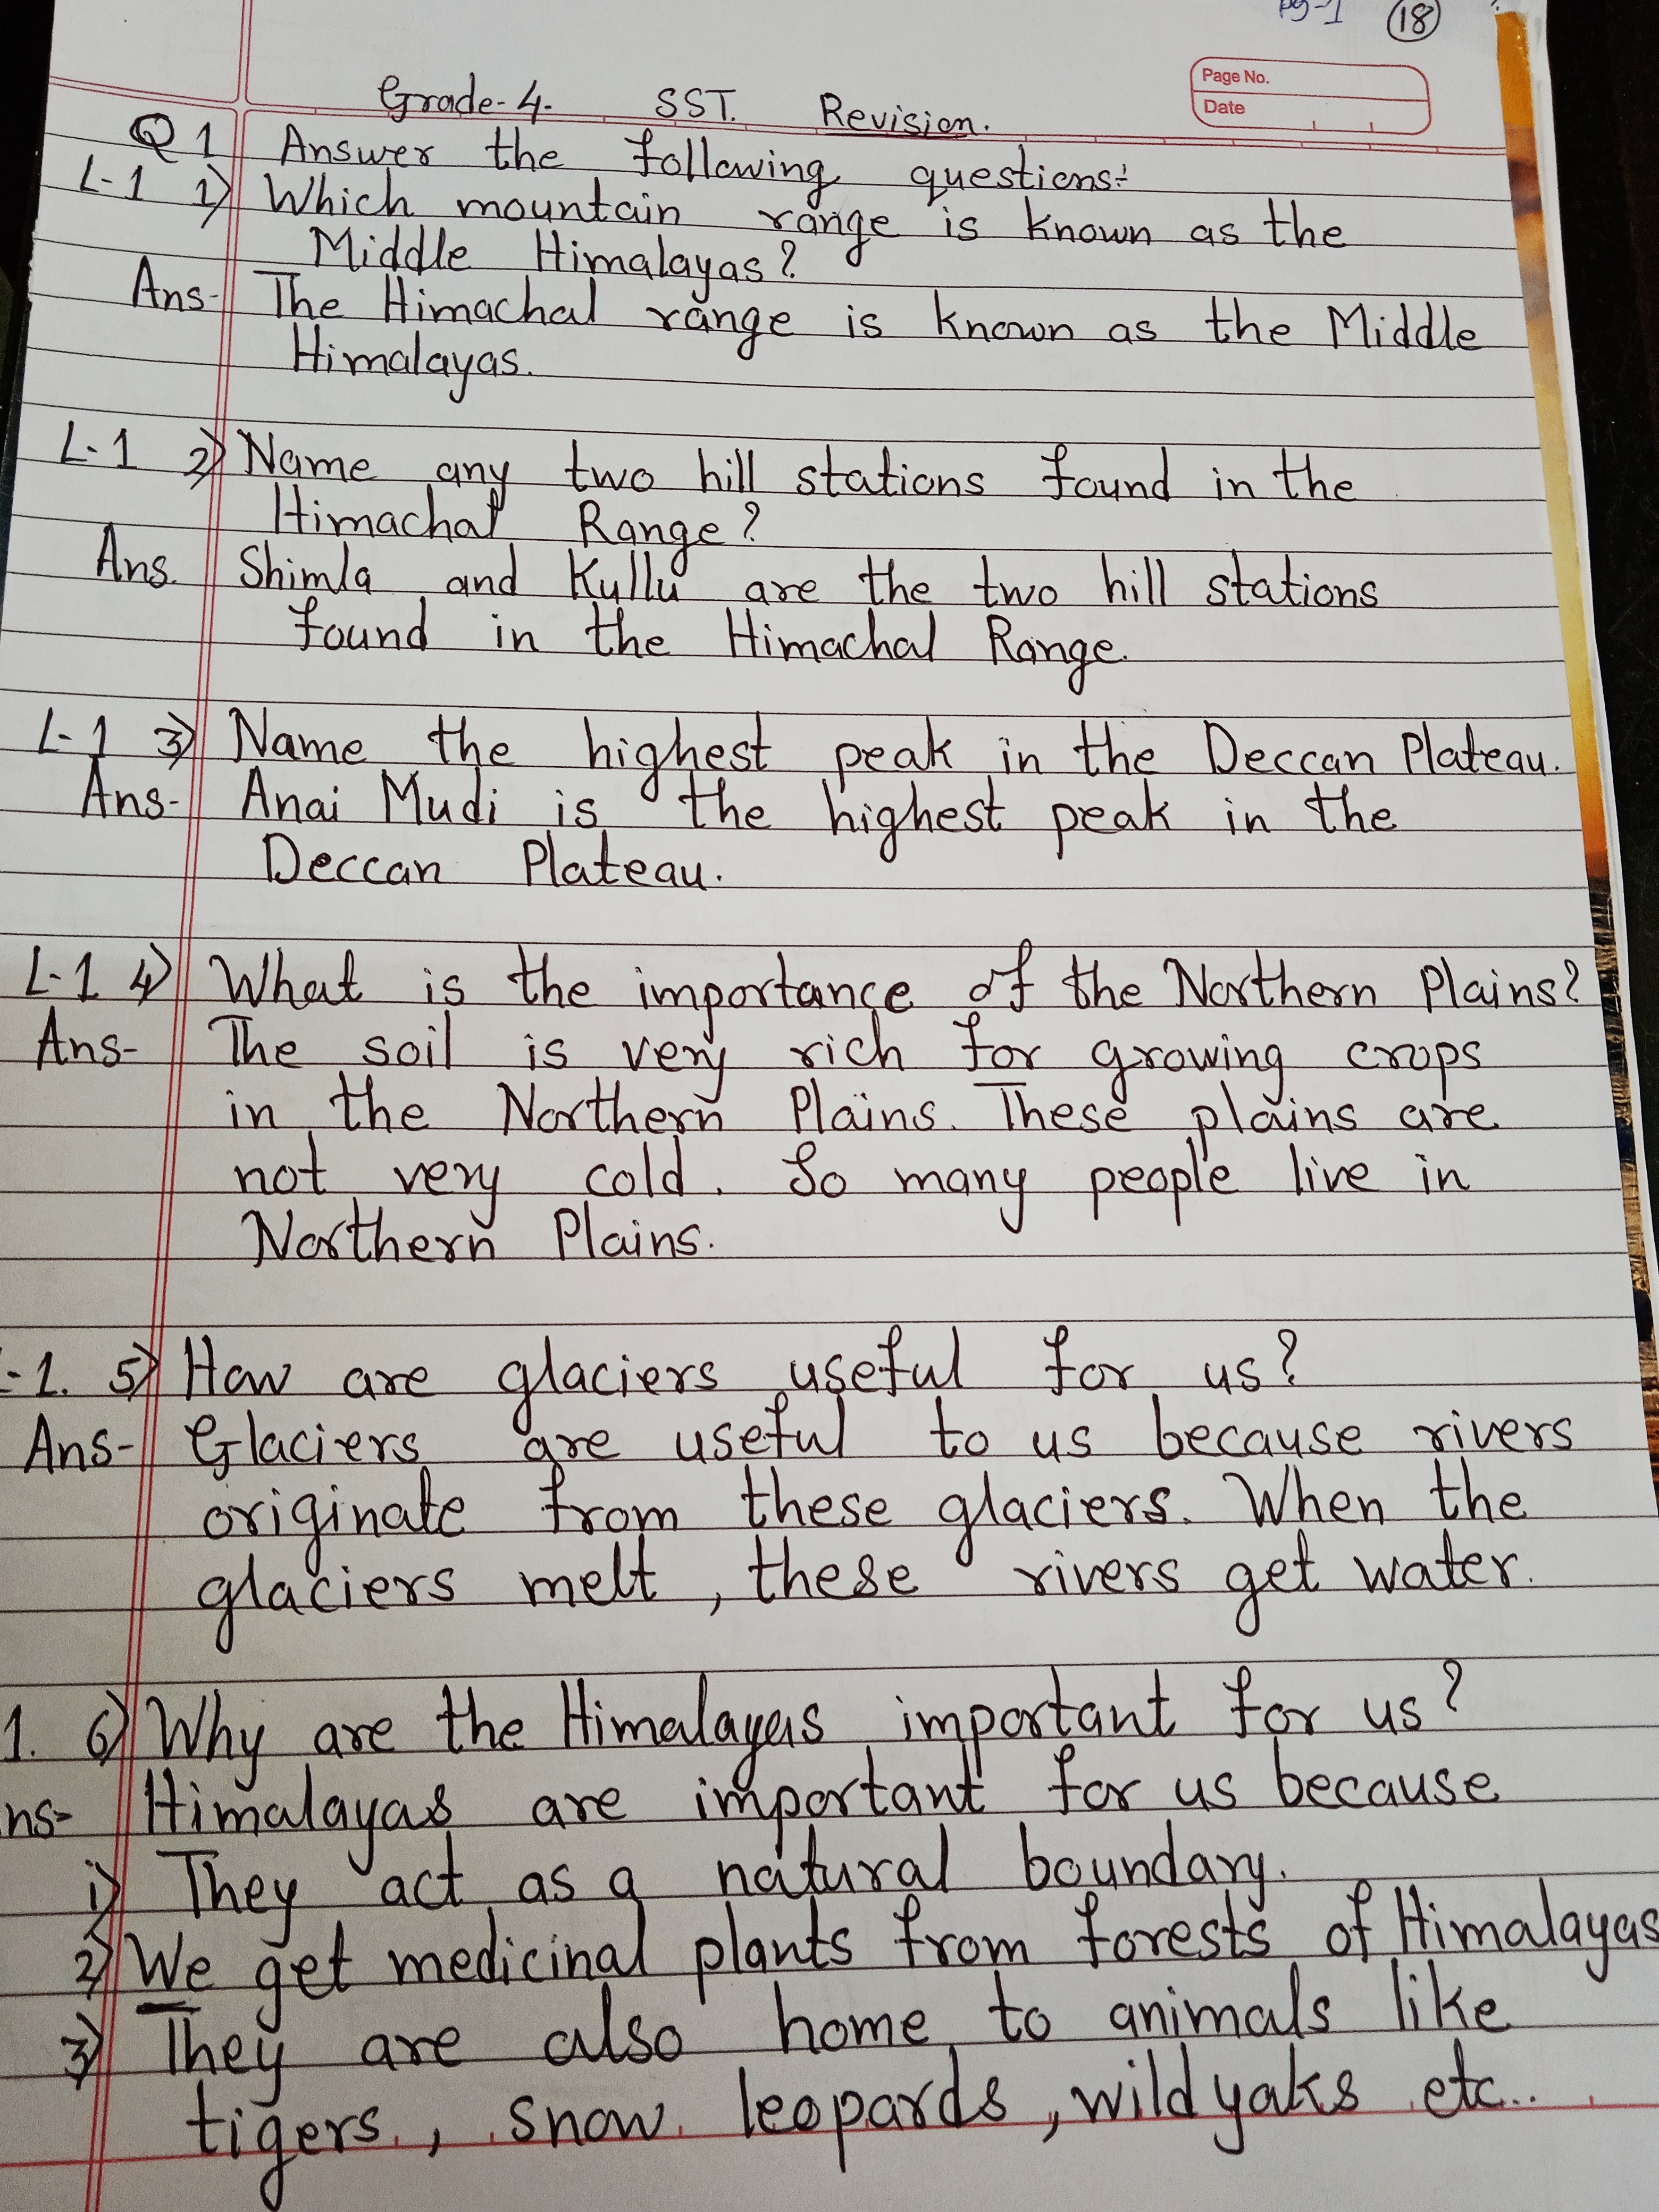 pg-1 18
Page No.
Date
Grade-4. SST. Revision.
Q1 Answer the following questions:-
L-1 1) Which mountain range is known as the
Middle Himalayas?
Ans- The Himachal range is known as the Middle
Himalayas.
L-1 2) Name any two hill stations found in the
Himachal Range?
Ans. Shimla and Kullu are the two hill stations
found in the Himachal Range.
L-1 3) Name the highest peak in the Deccan Plateau.
Ans- Anai Mudi is the highest peak in the
Deccan Plateau.
L-1 4) What is the importance of the Northern Plains?
Ans- The soil is very rich for growing crops
in the Northern Plains. These plains are
not very cold. So many people live in
Northern Plains.
-1. 5) How are glaciers useful for us?
Ans- Glaciers are useful to us because rivers
originate from these glaciers. When the
glaciers melt, these rivers get water.
1. 6) Why are the Himalayas important for us?
ns- Himalayas are important for us because
i) They act as a natural boundary.
2) We get medicinal plants from forests of Himalayas
3) They are also home to animals like
tigers, snow leopards, wild yaks etc..